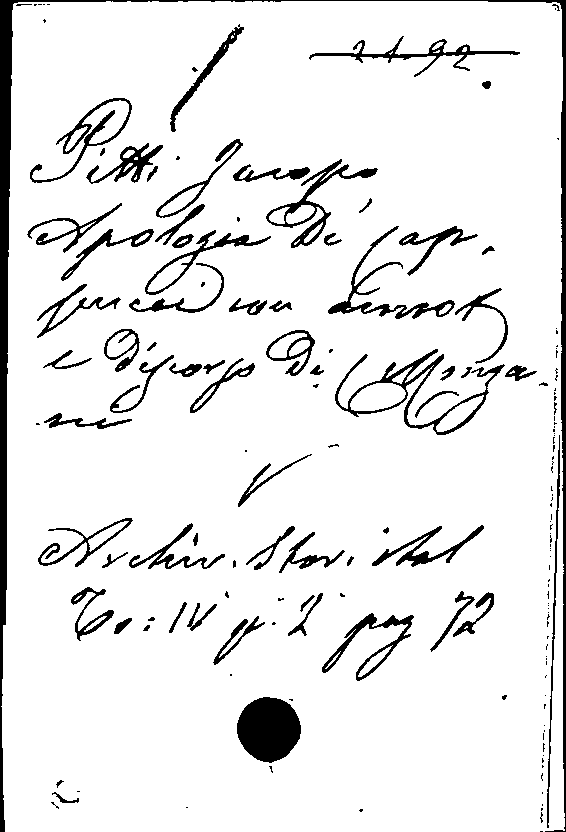 2192
Pitti Jacopo
Apologia Dei Cap-
pucci con annot
e Discorso Di C Monza-
ni
V
Archiv. Stor. ital
To: IV p. 2 pag 72